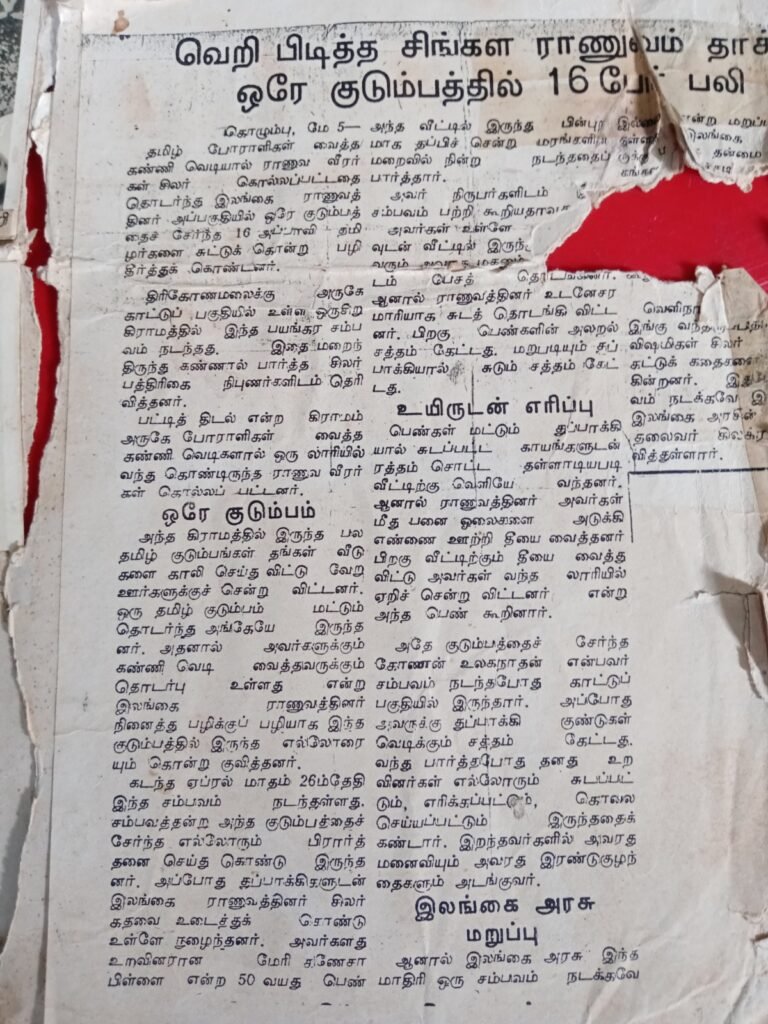 வெறி பிடித்த சிங்கள ராணுவம் தாக்
ஒரே குடும்பத்தில் 16 பேர் பலி
கொழும்பு, மே 5—
தமிழ் போராளிகள் வைத்த
கண்ணி வெடியால் ராணுவ வீரர்
கள் சிலர் கொல்லப்பட்டதை
தொடர்ந்த இலங்கை ராணுவத்
தினர் அப்பகுதியில் ஒரே குடும்பத்
தைச் சேர்ந்த 16 அப்பாவி தமி
ழர்களை சுட்டுக் கொன்று பழி
தீர்த்துக் கொண்டனர்.
திரிகோணமலைக்கு அருகே
காட்டுப் பகுதியில் உள்ள ஒருசிறு
கிராமத்தில் இந்த பயங்கர சம்ப
வம் நடந்தது. இதை மறைந்
திருந்து கண்ணால் பார்த்த சிலர்
பத்திரிகை நிபுணர்களிடம் தெரி
வித்தனர்.
பட்டித் திடல் என்ற கிராமம்
அருகே போராளிகள் வைத்த
கண்ணி வெடிகளால் ஒரு லாரியில்
வந்த கொண்டிருந்த ராணுவ வீரர்
கள் கொல்லப் பட்டனர்.
ஒரே குடும்பம்
அந்த கிராமத்தில் இருந்த பல
தமிழ் குடும்பங்கள் தங்கள் வீடு
களை காலி செய்து விட்டு வேறு
ஊர்களுக்குச் சென்று விட்டனர்.
ஒரு தமிழ் குடும்பம் மட்டும்
தொடர்ந்த அங்கேயே இருந்த
னர். அதனால் அவர்களுக்கும்
கண்ணி வெடி வைத்தவருக்கும்
தொடர்பு உள்ளது என்று
இலங்கை ராணுவத்தினர்
நினைத்து பழிக்குப் பழியாக இந்த
குடும்பத்தில் இருந்த எல்லோரை
யும் கொன்று குவித்தனர்.
கடந்த ஏப்ரல் மாதம் 26ம்தேதி
இந்த சம்பவம் நடந்தள்ளது.
சம்பவத்தன்று அந்த குடும்பத்தைச்
சேர்ந்த எல்லோரும் பிரார்த்
தனை செய்து கொண்டு இருந்த
னர். அப்போது துப்பாக்கிகளுடன்
இலங்கை ராணுவத்தினர் சிலர்
கதவை உடைத்துக் கொண்டு
உள்ளே நுழைந்தனர். அவர்களது
உறவினரான மேரி கணேசா
பிள்ளை என்ற 50 வயது பெண்
அந்த வீட்டில் இருந்த பின்புற
மாக தப்பிச் சென்று மரங்களின்
மறைவில் நின்று நடந்ததைப்
பார்த்தார்.
அவர் நிருபர்களிடம்
சம்பவம் பற்றி கூறியதாவ
அவர்கள் உள்ளே
வுடன் வீட்டில் இருந்
வரும்
டம் பேசத்
ஆனால் ராணுவத்தினர் உடனேசர
மாரியாக சுடத் தொடங்கி விட்ட
னர். பிறகு பெண்களின் அலறல்
சத்தம் கேட்டது. மறுபடியும் துப்
பாக்கியால் சுடும் சத்தம் கேட்
டது.
உயிருடன் எரிப்பு
பெண்கள் மட்டும் துப்பாக்கி
யால் சுடப்பட்ட காயங்களுடன்
ரத்தம் சொட்ட தள்ளாடியபடி
வீட்டிற்கு வெளியே வந்தனர்.
ஆனால் ராணுவத்தினர் அவர்கள்
மீது பனை ஓலைகளை அடுக்கி
எண்ணை ஊற்றி தீயை வைத்தனர்
பிறகு வீட்டிற்கும் தீயை வைத்து
விட்டு அவர்கள் வந்த லாரியில்
ஏறிச் சென்று விட்டனர் என்று
அந்த பெண் கூறினார்.
அதே குடும்பத்தைச் சேர்ந்த
கோணன் உலகநாதன் என்பவர்
சம்பவம் நடந்தபோது காட்டுப்
பகுதியில் இருந்தார். அப்போது
அவருக்கு துப்பாக்கி குண்டுகள்
வெடிக்கும் சத்தம் கேட்டது.
வந்து பார்த்தபோது தனது உற
வினர்கள் எல்லோரும் சுடப்பட்
டும், எரிக்கப்பட்டும், கொலை
செய்யப்பட்டும் இருந்ததைக்
கண்டார். இறந்தவர்களில் அவரது
மனைவியும் அவரது இரண்டுகுழந்
தைகளும் அடங்குவர்.
இலங்கை அரசு
மறுப்பு
ஆனால் இலங்கை அரசு இந்த
மாதிரி ஒரு சம்பவம் நடக்கவே
என்று மறுப்
இலங்கை
தன்மை
வெளிநா
இங்கு
விஷமிகள் சிலர்
கட்டுக் கதைகளை
கின்றனர்.
வம் நடக்கவே
இலங்கை அரசின்
தலைவர்
வித்தள்ளார்.